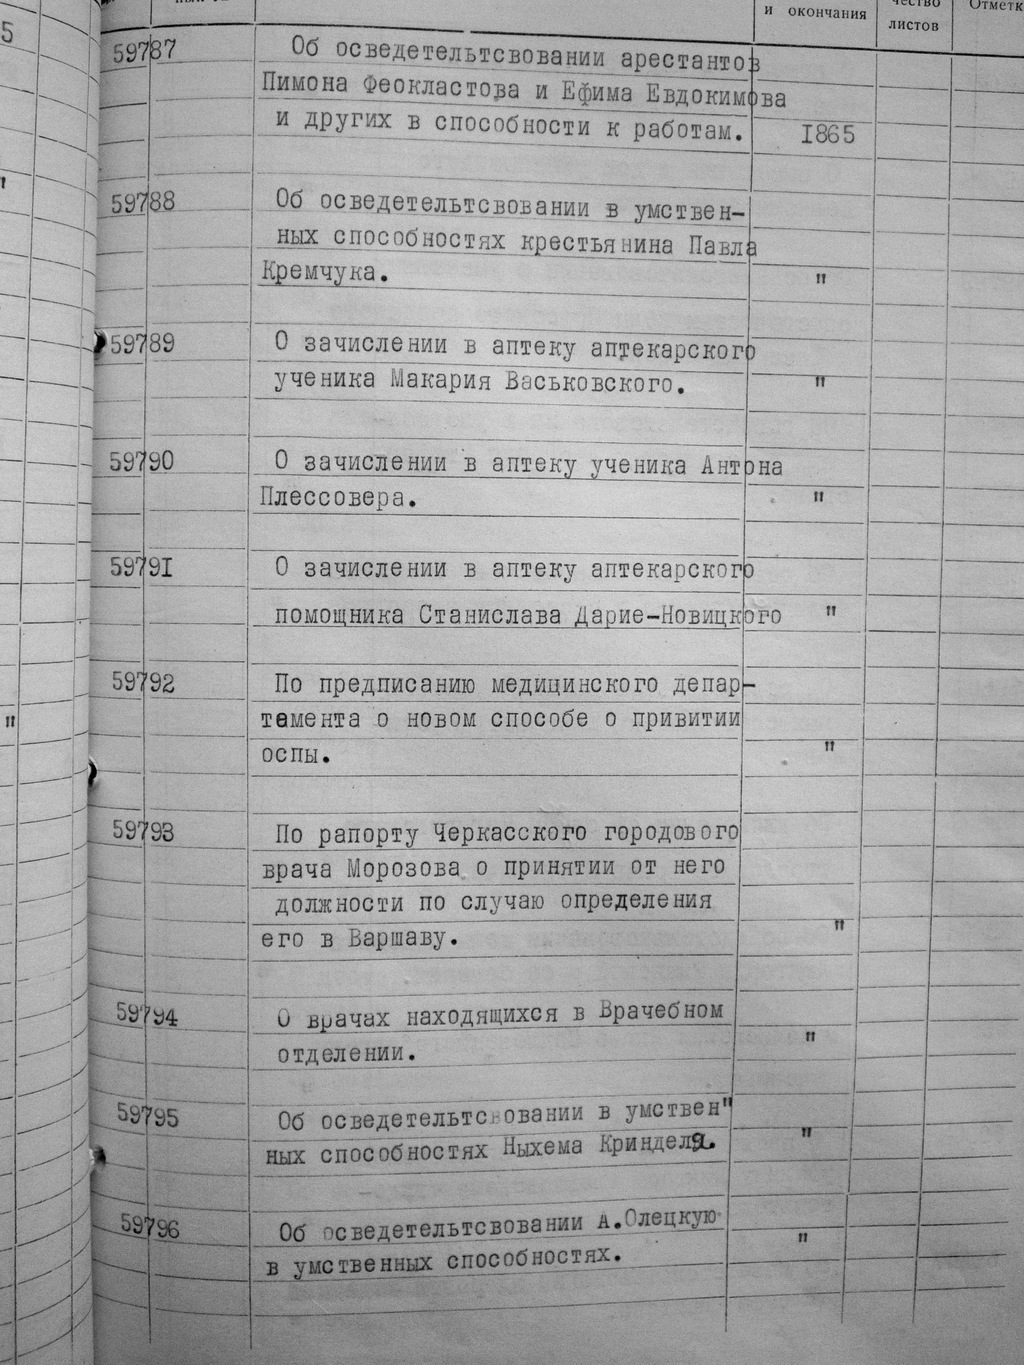 и окончания
чество
листов
Отметк
5
59787 Об осведетельтсвовании арестантов
Пимона Феокластова и Ефима Евдокимова
и других в способности к работам. 1865
"
59788 Об осведетельтсвовании в умствен-
ных способностях крестьянина Павла
Кремчука. "
59789 О зачислении в аптеку аптекарского
ученика Макария Васьковского. "
59790 О зачислении в аптеку ученика Антона
Плессовера. "
59791 О зачислении в аптеку аптекарского
помощника Станислава Дарие-Новицкого "
59792 По предписанию медицинского депар-
тамента о новом способе о привитии
" оспы. "
59793 По рапорту Черкасского городового
врача Морозова о принятии от него
должности по случаю определения
его в Варшаву. "
59794 О врачах находящихся в Врачебном
отделении. "
59795 Об осведетельтсвовании в умствен"
ных способностях Ныхема Кринделя. "
59796 Об осведетельтсвовании А.Олецкую
в умственных способностях. "